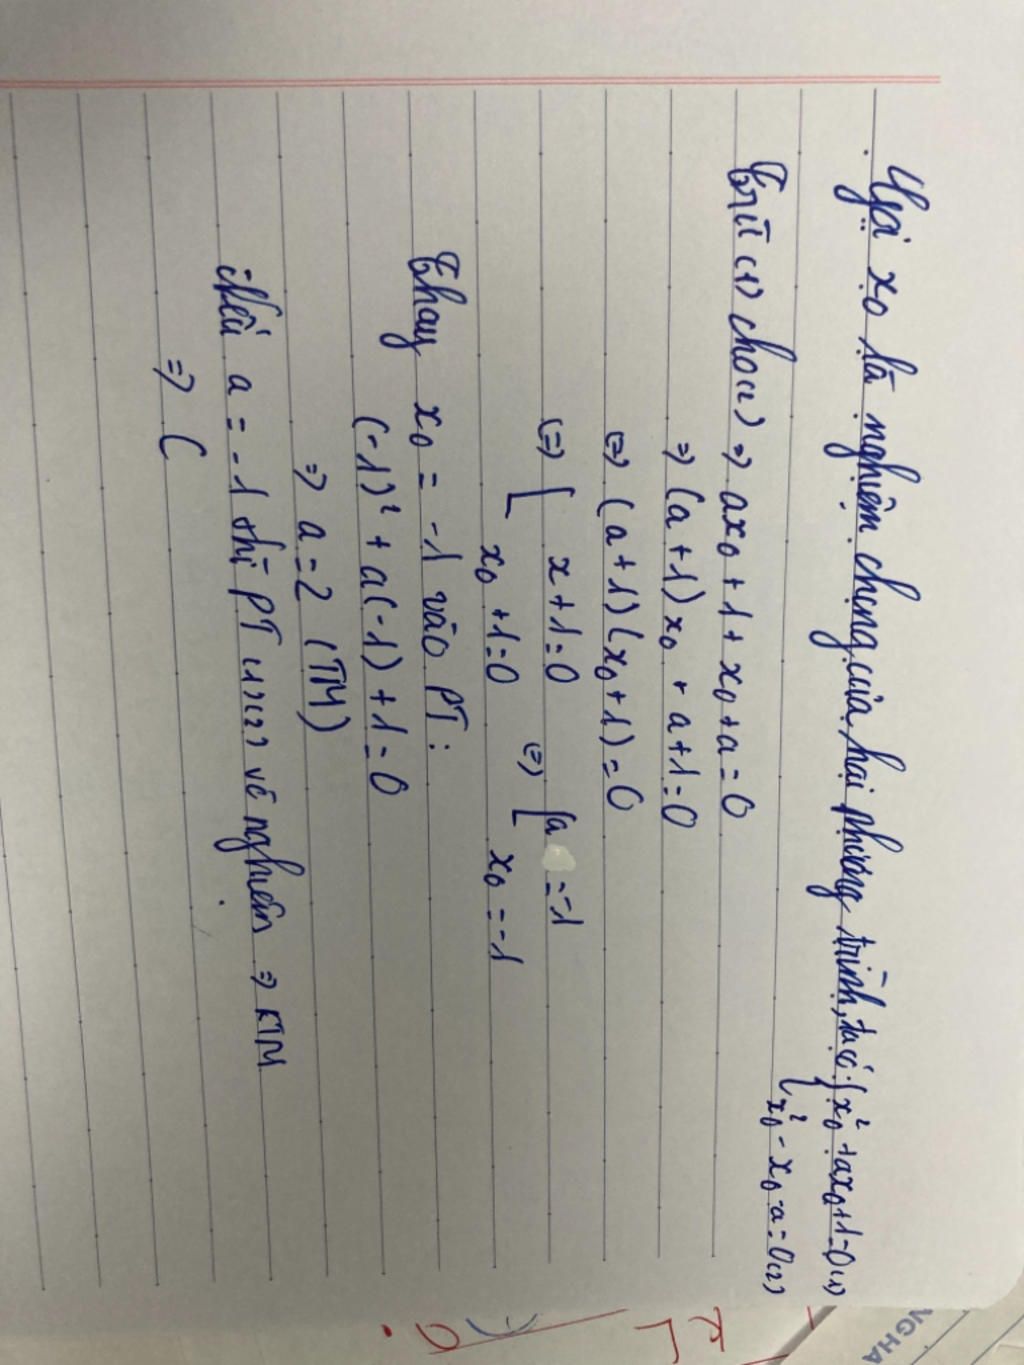 Gọi x₀ là nghiệm chung của hai phương trình, ta có: { x₀² + ax₀ + 1 = 0 (1)
x₀² - x₀ - a = 0 (2)
Trừ (1) cho (2) => ax₀ + 1 + x₀ + a = 0
=> (a + 1) x₀ + a + 1 = 0
<=> (a + 1)(x₀ + 1) = 0
(=) [ x + 1 = 0 (=) [ a = -1
x₀ + 1 = 0 x₀ = -1
Thay x₀ = -1 vào PT:
(-1)² + a(-1) + 1 = 0
=> a = 2 (TM)
Nếu a = -1 thì PT (1)(2) vô nghiệm => KTM
=> (
NGHA